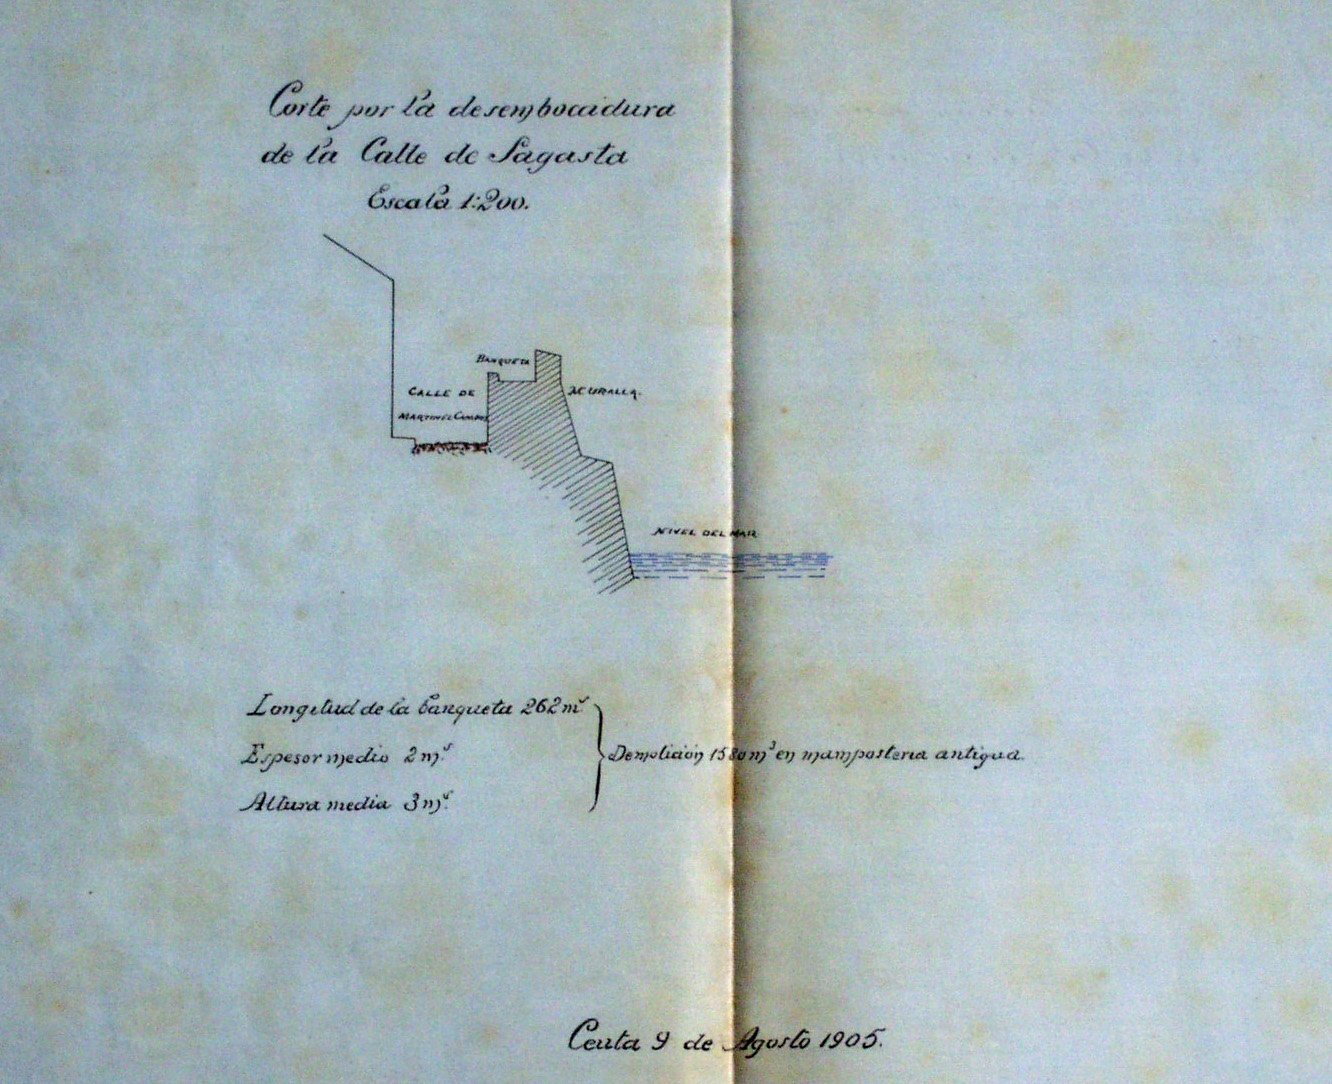 Corte por la desembocadura
de la Calle de Sagasta
Escala 1:200.
BANQUETA
CALLE DE
MARTINEZ CAMPOS
MURALLA.
NIVEL DEL MAR
Longitud de la banqueta 262 mˢ
Espesor medio 2 mˢ.
Altura media 3 mˢ.
Demolición 1580 m³ en mampostería antigua.
Ceuta 9 de Agosto 1905.